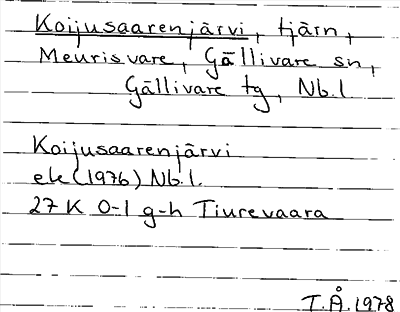 Koijusaarenjärvi, tjärn,
Meurisvare, Gällivare sn,
Gällivare tg, Nb.l.
Koijusaarenjärvi
ek (1976) Nb.l.
27 K 0-1 g-h Tiurevaara
T.Å. 1978